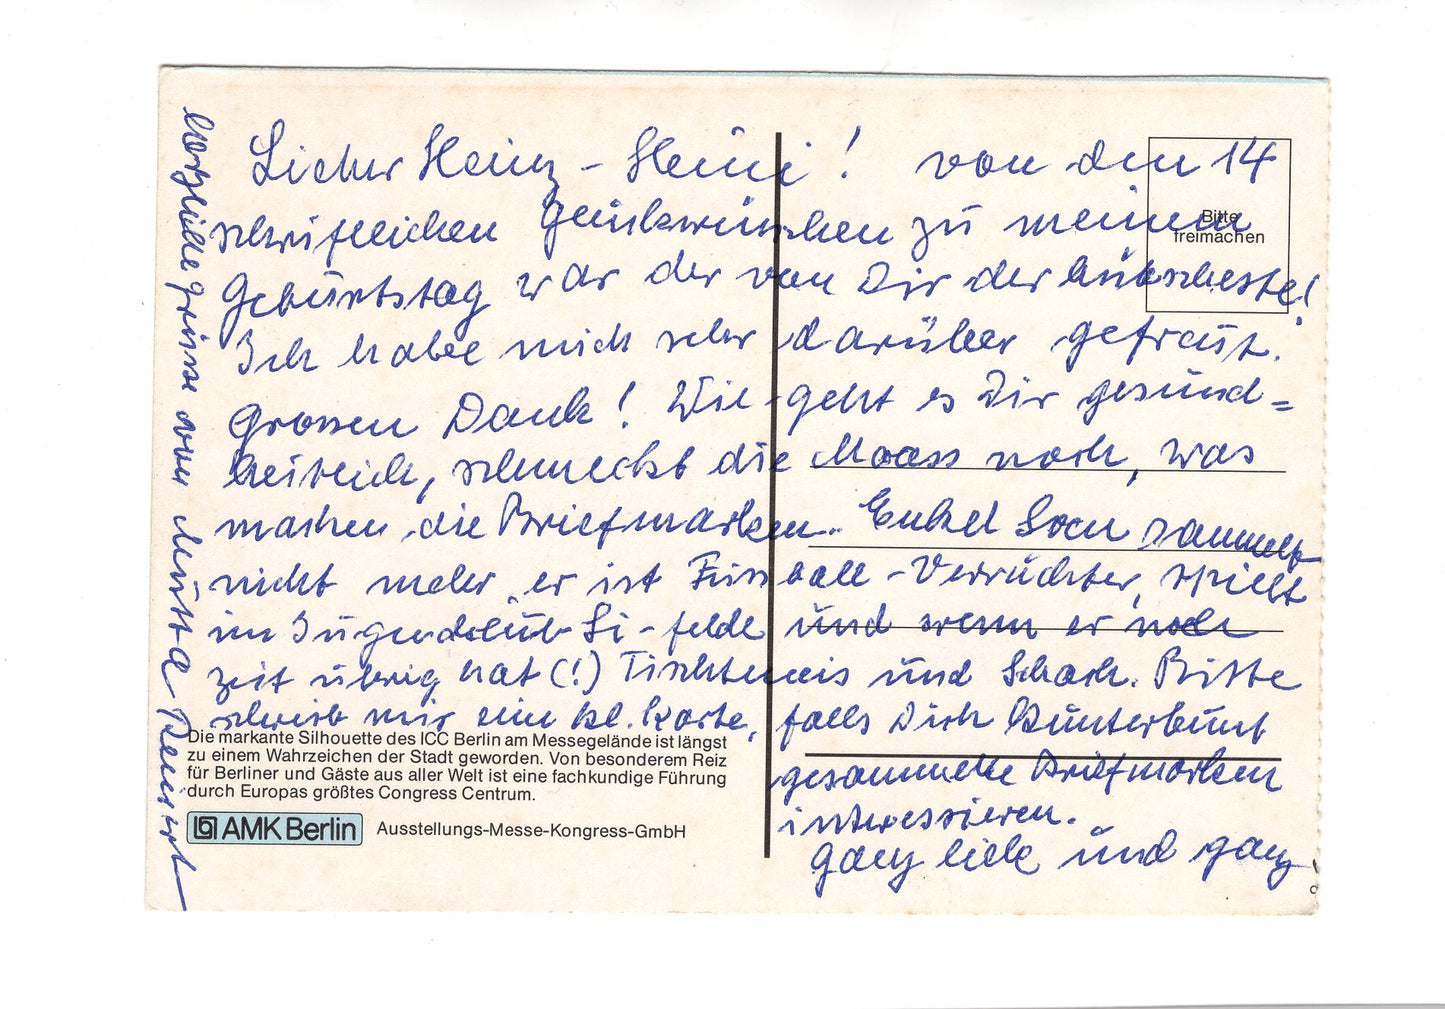 Lieber Heinz-Heini! von den 14
schriftlichen Glückwünschen zu meinem
Geburtstag war der von Dir der hübscheste!
Ich habe mich sehr darüber gefreut.
Grossen Dank! Wie geht es Dir gesund=
heitlich, schmeckt die Maass noch, was
machen die Briefmarken. Enkel Sven sammelt
nicht mehr, er ist Fussball-Verrückter, spielt
im Jugendclub Li-felde und wenn er noch
zeit übrig hat (!) Tischtennis und Schach. Bitte
schreib mir eine kl. Karte, falls Dich kunterbunt
gesammelte Briefmarken
interessieren.
ganz liebe und ganz
herzliche grüsse von
Bitte
freimachen
Die markante Silhouette des ICC Berlin am Messegelände ist längst
zu einem Wahrzeichen der Stadt geworden. Von besonderem Reiz
für Berliner und Gäste aus aller Welt ist eine fachkundige Führung
durch Europas größtes Congress Centrum.
AMK Berlin Ausstellungs-Messe-Kongress-GmbH